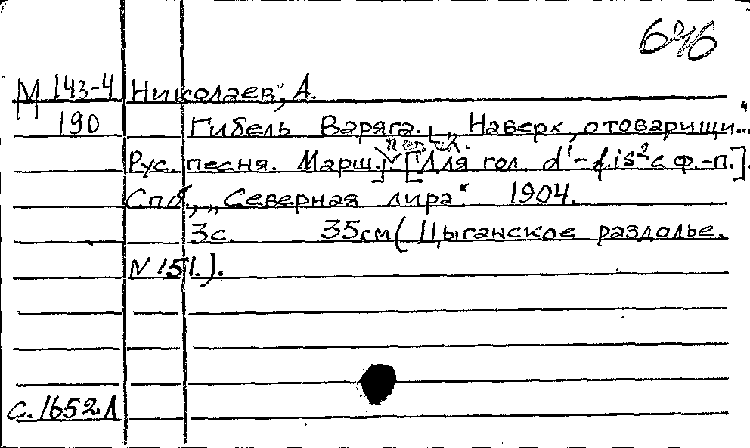 646
М 143-4 Николаев, А.
190 Гибель Варяга. [„Наверх, о товарищи..."
Рус. песня. Марш.] [Для гол. d¹-fis² с ф.-п.].
Спб, „Северная лира". 1904.
3с. 35см (Цыганское раздолье.
N 151.).
с. 1652Л